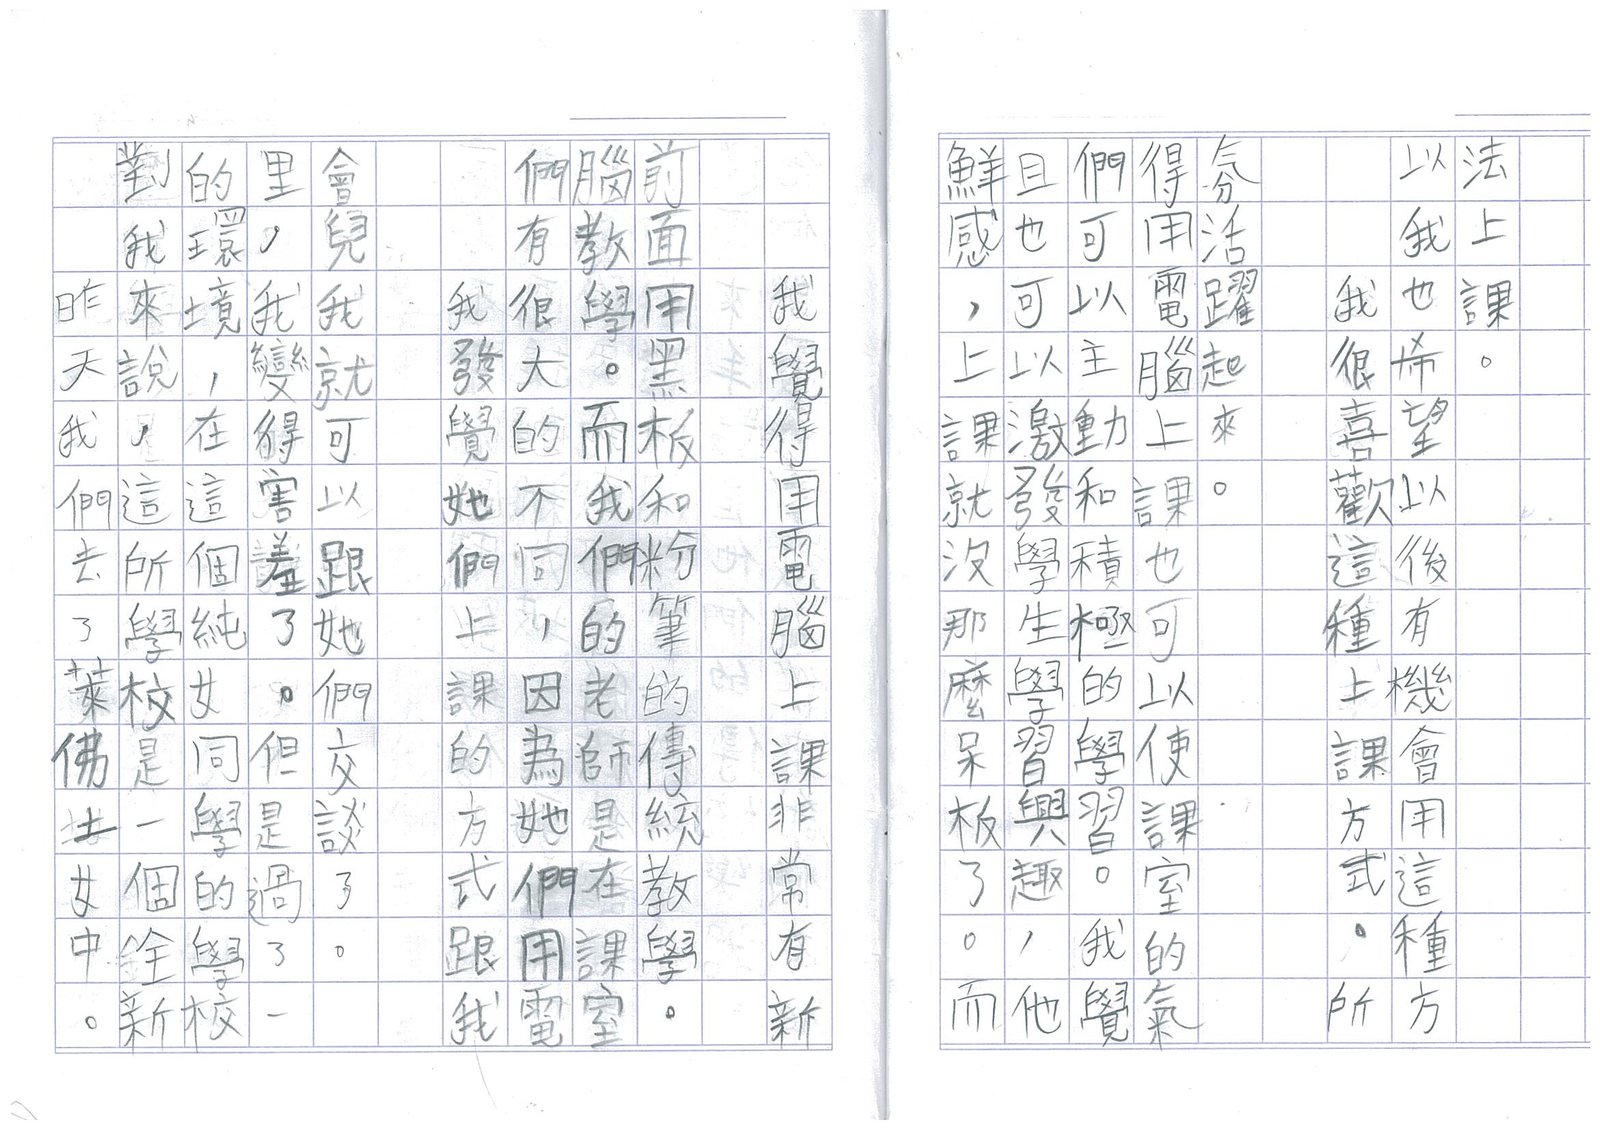 昨天我們去了萊佛士女中。
對我來說，這所學校是一個全新
的環境，在這個純女同學的學校
里，我變得害羞了。但是過了一
會兒我就可以跟她們交談了。
我發覺她們上課的方式跟我
們有很大的不同，因為她們用電
腦教學。而我們的老師是在課室
前面用黑板和粉筆的傳統教學。
我覺得用電腦上課非常有新
鮮感，上課就沒那麼呆板了。而
且也可以激發學生學習興趣，他
們可以主動和積極的學習。我覺
得用電腦上課也可以使課室的氣
氛活躍起來。
我很喜歡這種上課方式。所
以我也希望以後有機會用這種方
法上課。